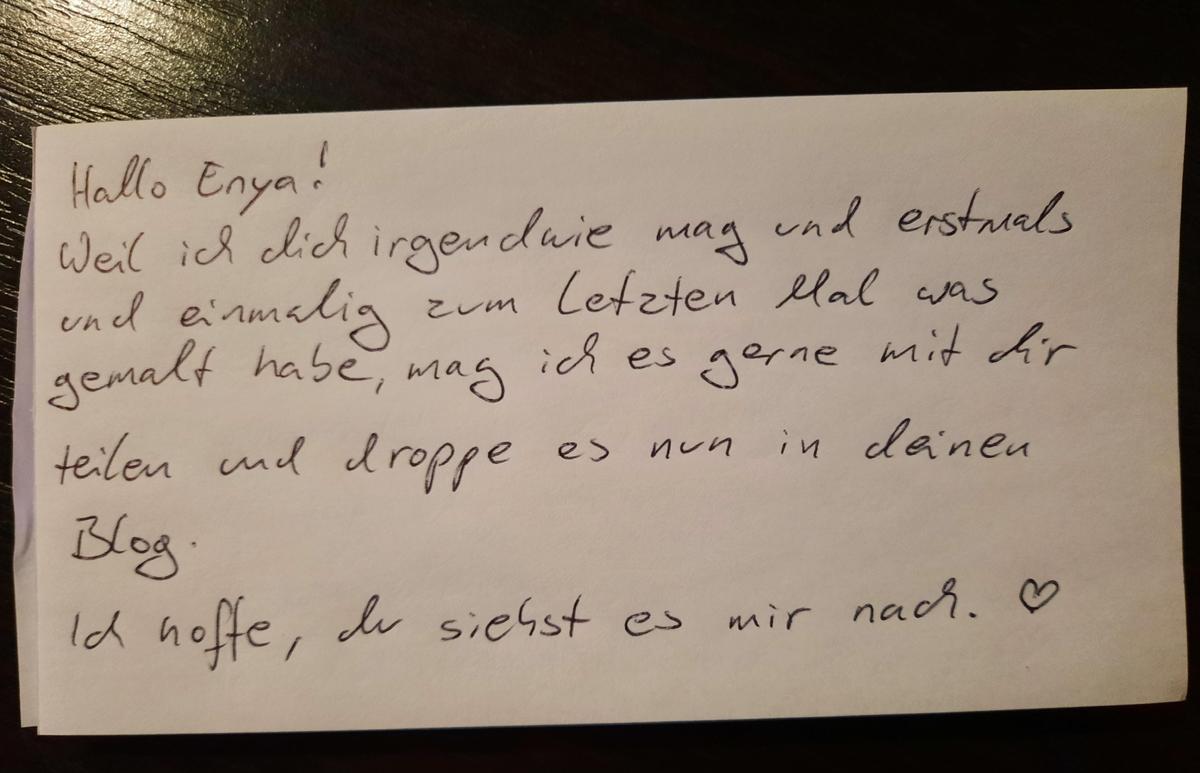 Hallo Enya!
Weil ich dich irgendwie mag und erstmals
und einmalig zum letzten Mal was
gemalt habe, mag ich es gerne mit dir
teilen und droppe es nun in deinen
Blog.
Ich hoffe, du siehst es mir nach. ♡